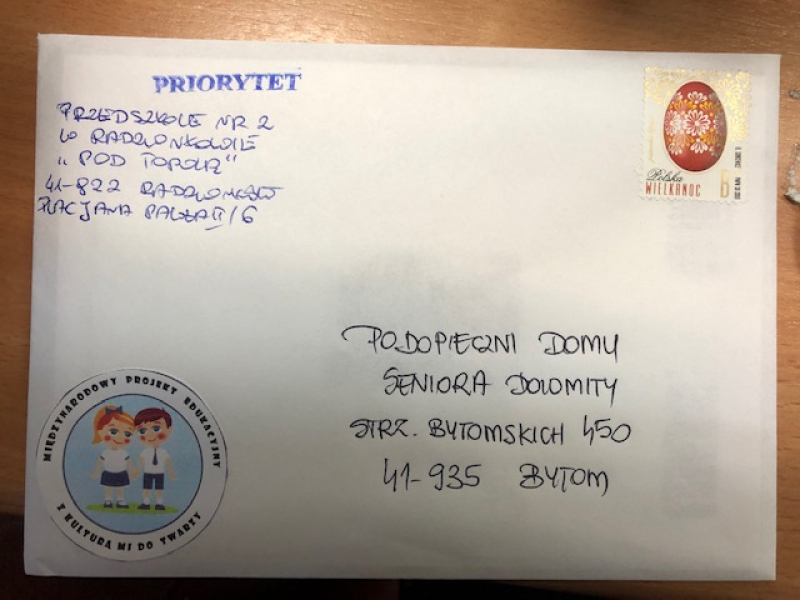 PRIORYTET
PRZEDSZKOLE NR 2
W RADZIONKOWIE
"POD TOPOLĄ"
41-922 RADZIONKÓW
PLAC JANA PAWŁA II/6
Polska
WIELKANOC 6
PODOPIECZNI DOMU
SENIORA DOLOMITY
STRZ. BYTOMSKICH 450
41-935 BYTOM
MIĘDZYNARODOWY PROJEKT EDUKACYJNY
Z KULTURĄ MI DO TWARZY